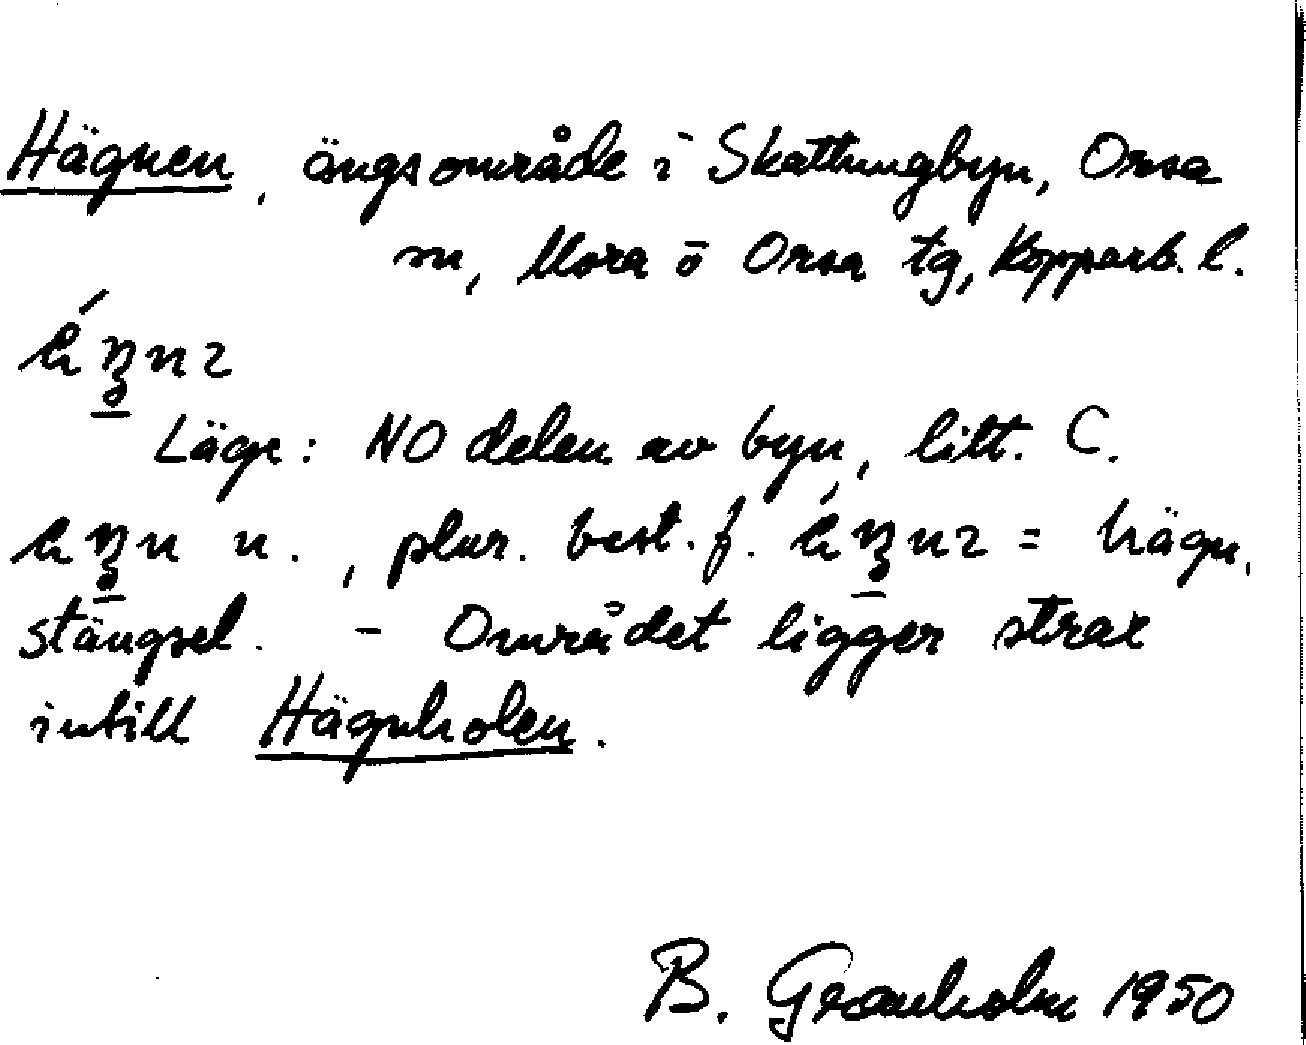 Hägnen, ängsområde i Skattungbyn, Orsa
sn, Mora o Orsa tg, Kopparb. l.
Läge: NO delen av byn, litt. C.
n., plur. best. f. = hägn,
stängsel. - Området ligger strax
intill Hägnholen.
B. Granholm 1950